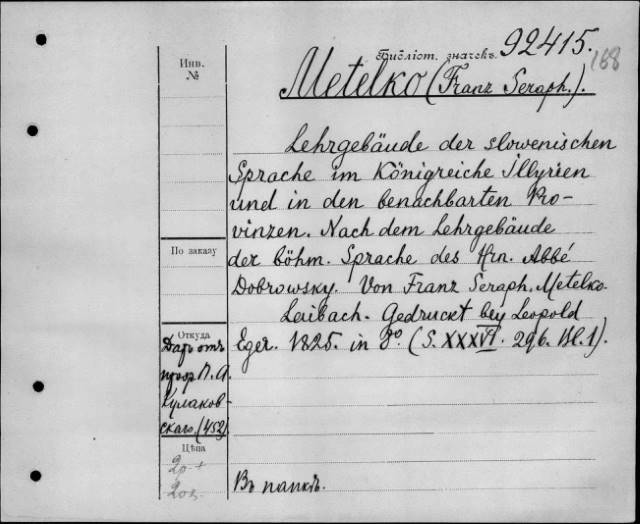 Библіот. значекъ 92415.
168
Инв.
№
Metelko (Franz Seraph.).
Lehrgebäude der slowenischen
Sprache im Königreiche Illyrien
und in den benachbarten Pro-
vinzen. Nach dem Lehrgebäude
По заказу
der böhm. Sprache des Hrn. Abbé
Dobrowsky. Von Franz Seraph. Metelko.
Laibach. Gedruckt bey Leopold
Eger. 1825. in 8º. (S. XXXVI. 296. Bl. 1).
Откуда
Даръ отъ
проф. П. А.
Кулаков-
скаго. (452)
Цѣна
Въ папкѣ.